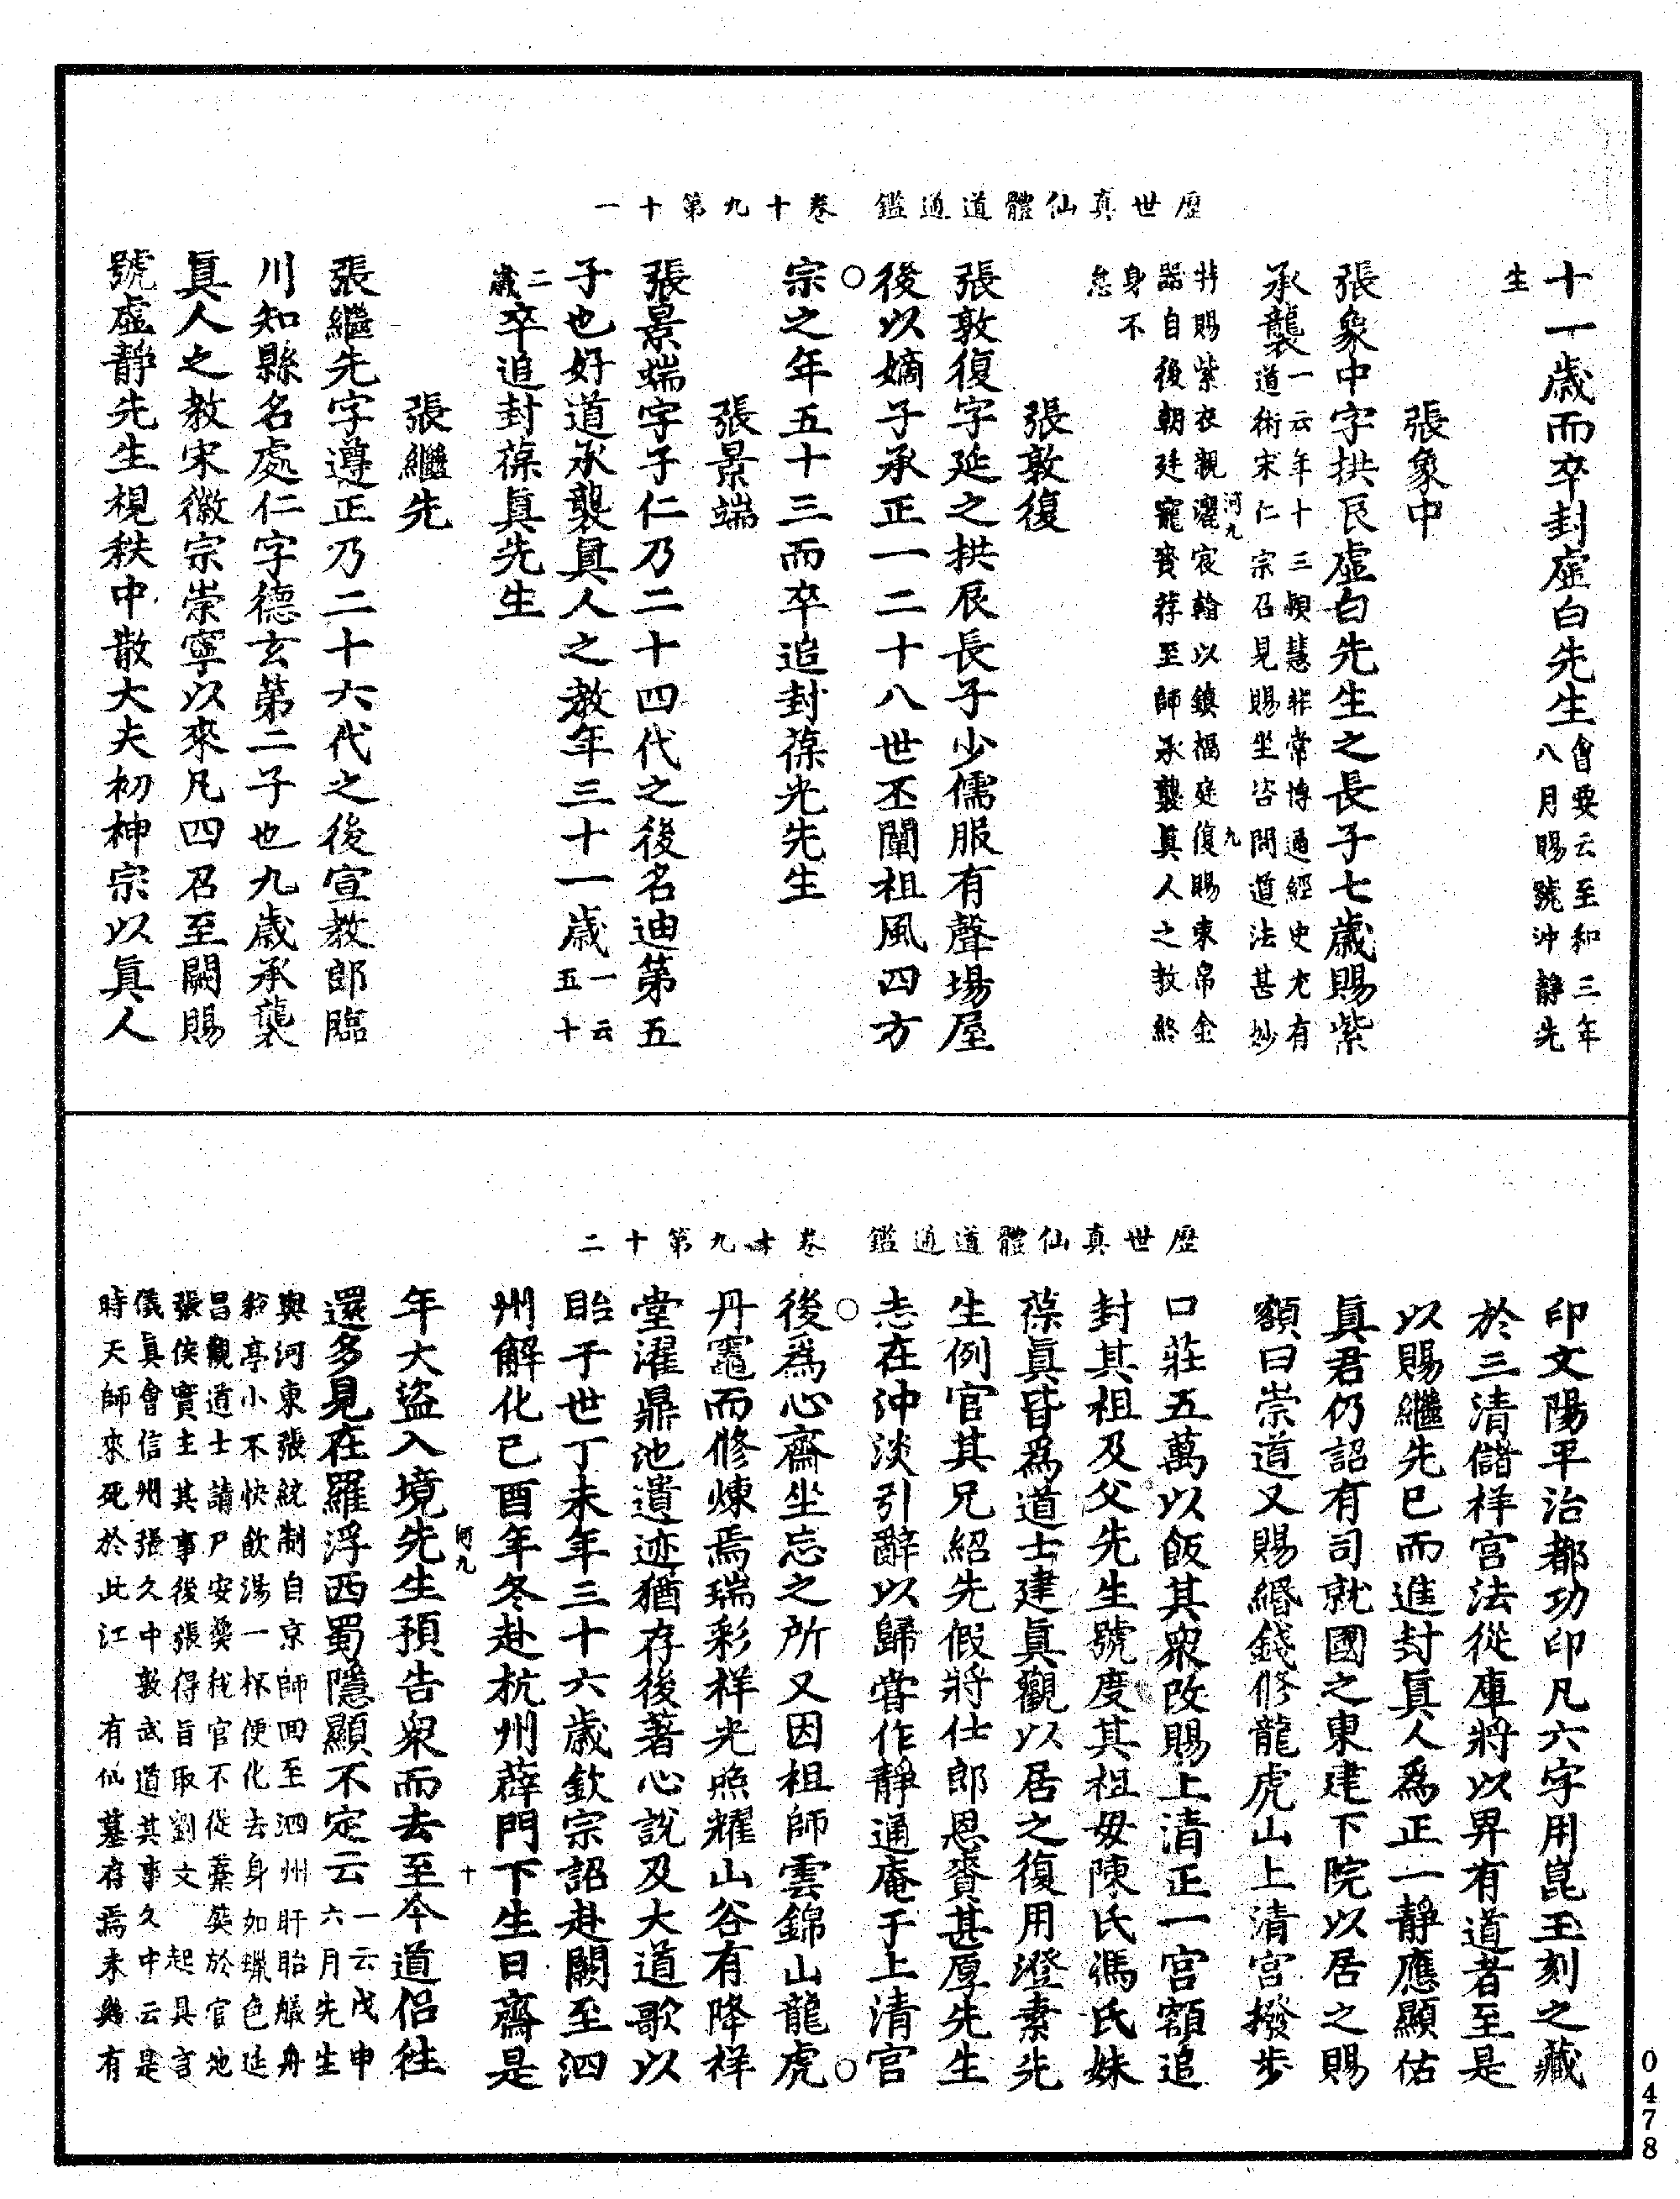 歷世真仙體道通鑑　卷十九第十一
十一歲而卒封虛白先生會要云至和三年
八月賜號沖靜先
生
張象中
張象中字拱辰虛白先生之長子七歲賜紫
承襲一云年十三穎慧非常博通經史尤有
道術宋仁宗召見賜坐咨問道法甚妙
河九
九
特賜紫衣親灑宸翰以鎮福庭復賜束帛金
器自後朝廷寵賚荐至師承襲真人之教終
身不
怠
張敦復
張敦復字延之拱辰長子少儒服有聲場屋
後以嫡子承正一二十八世丕闡祖風四方
○
宗之年五十三而卒追封葆光先生
張景端
張景端字子仁乃二十四代之後名迪第五
子也好道承襲真人之教年三十一歲一云
五十
二
歲卒追封葆真先生
張繼先
張繼先字遵正乃二十六代之後宣教郎臨
川知縣名處仁字德玄第二子也九歲承襲
真人之教宋徽宗崇寧以來凡四召至闕賜
號虛靜先生視秩中散大夫初神宗以真人
歷世真仙體道通鑑　卷十九第十二
印文陽平治都功印凡六字用崑玉刻之藏
於三清儲祥宮法從庫將以畀有道者至是
以賜繼先已而進封真人為正一靜應顯佑
真君仍詔有司就國之東建下院以居之賜
額曰崇道又賜緡錢修龍虎山上清宮撥步
口莊五萬以飯其眾改賜上清正一宮額追
封其祖及父先生號度其祖母陳氏馮氏妹
葆真皆為道士建真觀以居之復用澄素先
生例官其兄紹先假將仕郎恩賚甚厚先生
志在沖淡引辭以歸嘗作靜通庵于上清宮
○
○
後為心齋坐忘之所又因祖師雲錦山龍虎
丹竈而修煉焉瑞彩祥光照耀山谷有降祥
堂濯鼎池遺迹猶存後著心說及大道歌以
眙于世丁未年三十六歲欽宗詔赴闕至泗
州解化己酉年冬赴杭州薜門下生日齋是
河九
十
年大盜入境先生預告眾而去至今道侶往
還多見在羅浮西蜀隱顯不定云一云戊申
六月先生
與河東張統制自京師回至泗州盱眙艤舟
粉亭小不快飲湯一杯便化去身如蠟色延
昌觀道士請尸安奠我官不從藁葬於官地
張侯實主其事後張得旨取劉文　起具言
儀真會信州張久中敦武道其事久中云是
時天師來死於此江　有仙墓存焉未幾有
0478